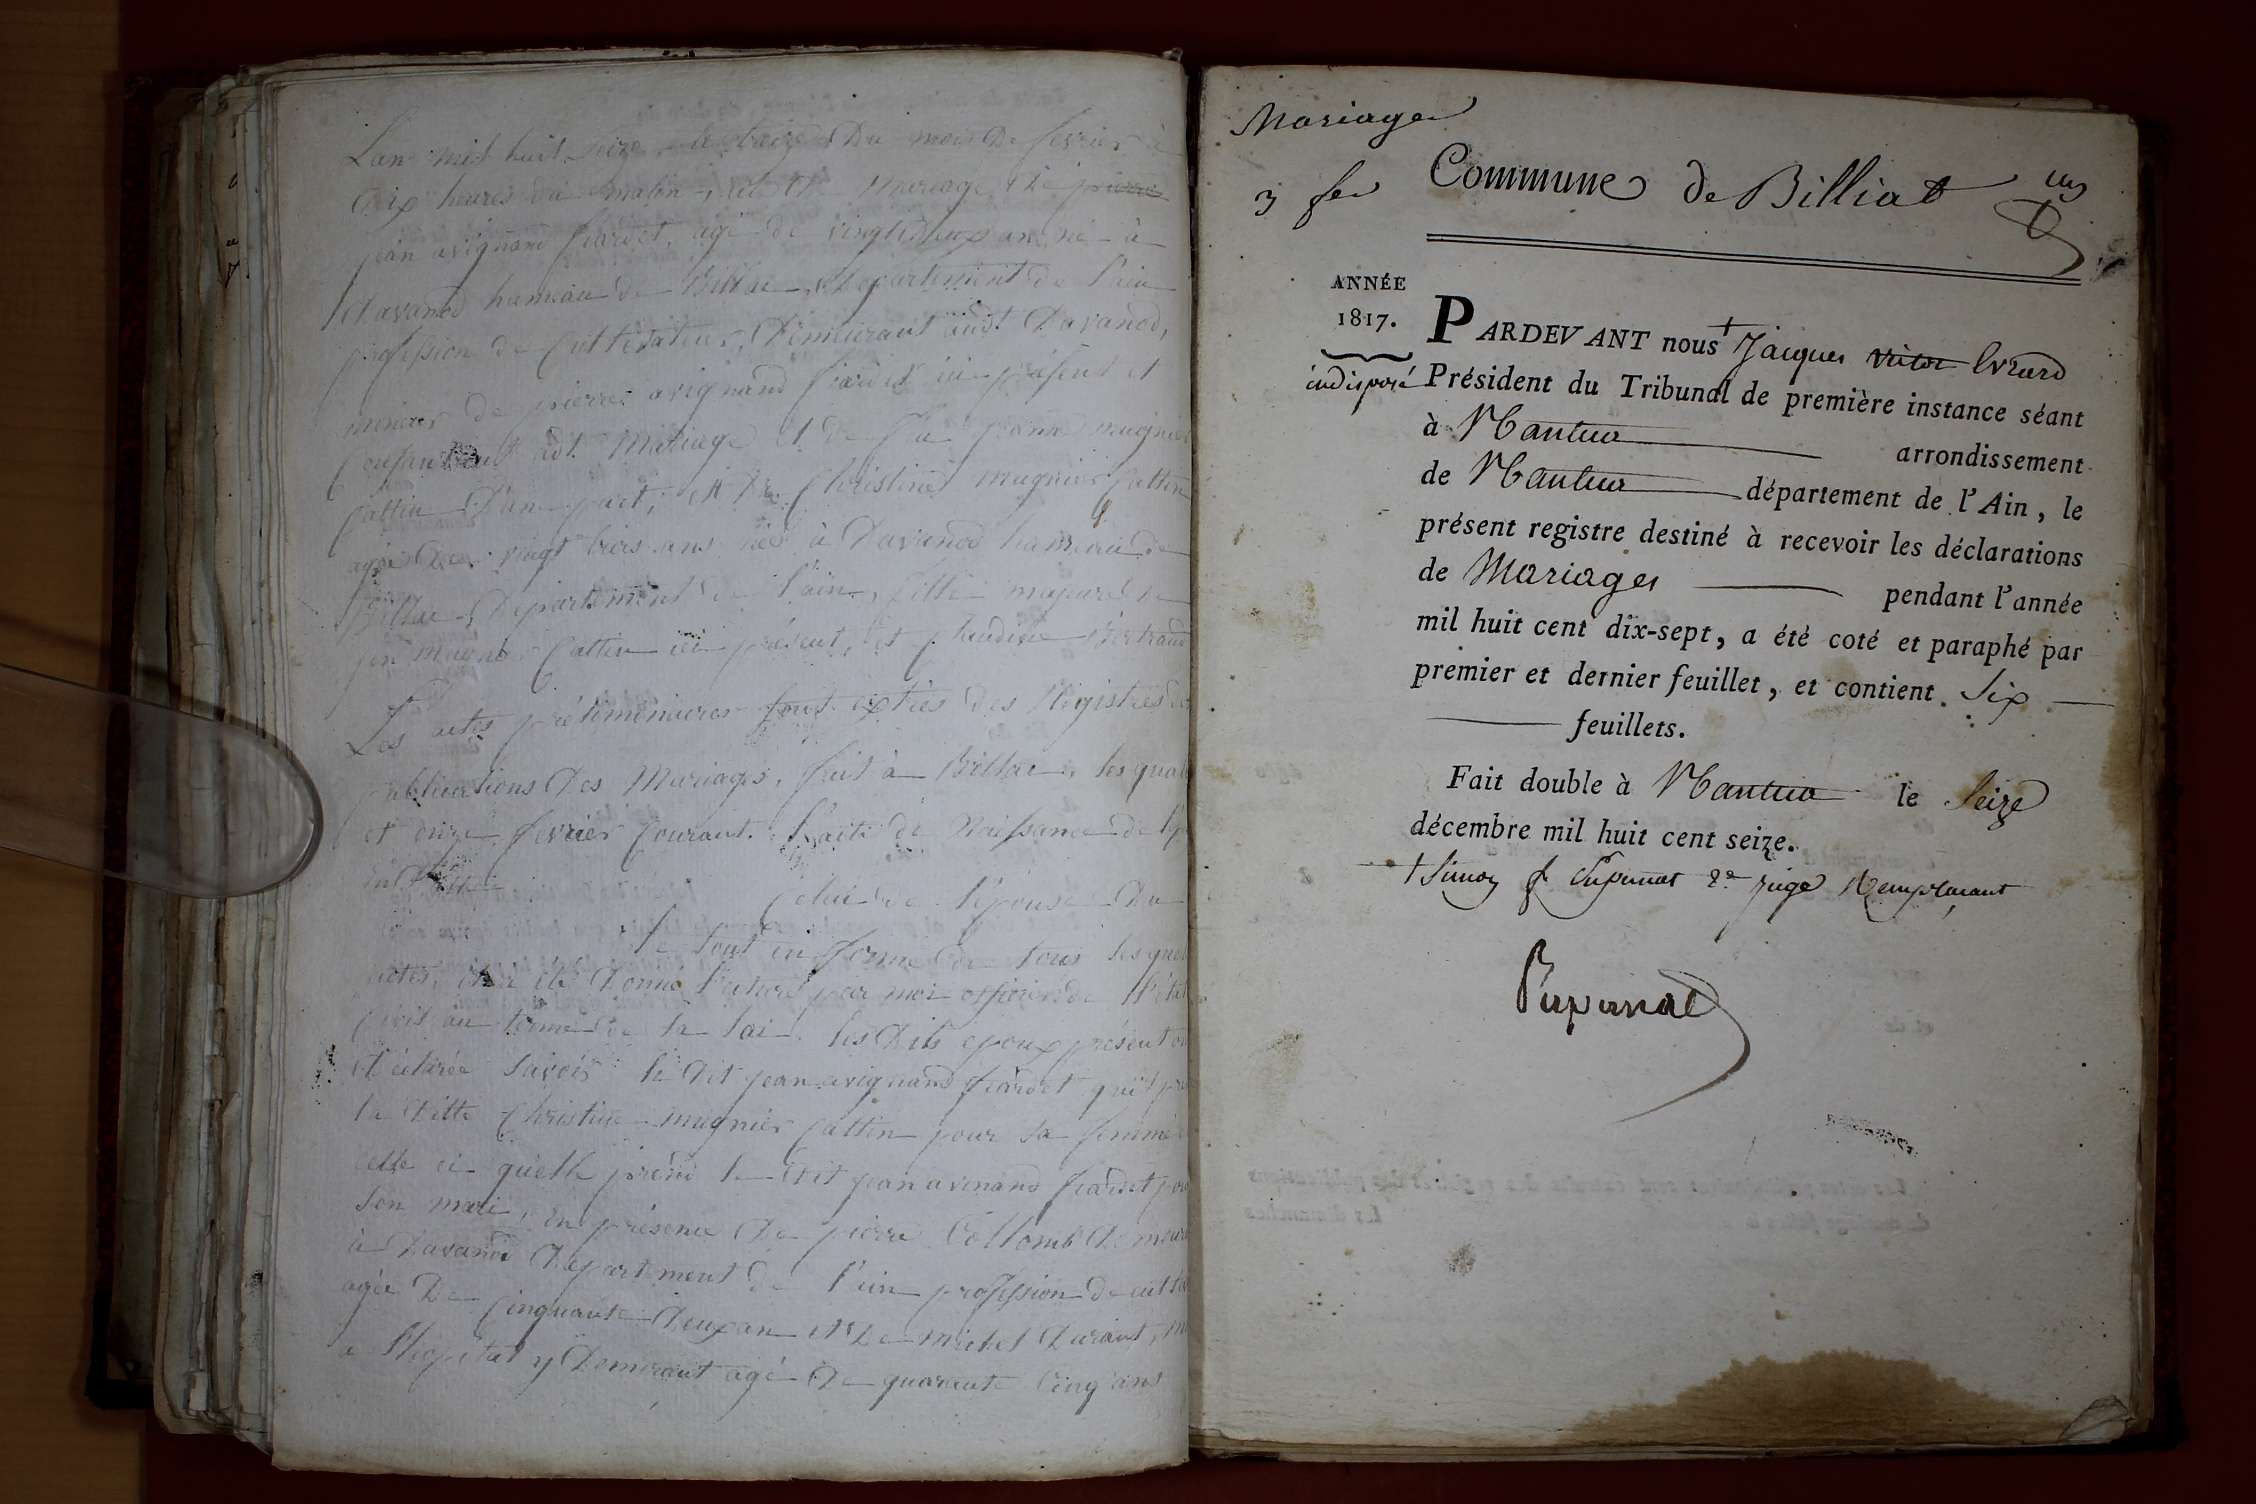 L'an mil huit seize le treize du mois de fevrier à
dix heures du matin, acte de Mariage de pierre
jean avignand fiardet, agé de vingt deux ans né à
davanod hameau de Billiac, département de l'ain
profession de Cultivateur, demeurant audt davanod,
mineur de pierre avignand fiardet ici présent et
Consentant adt Mariage et de fue
Cattin d'une part, et de Christine mugnier Cattin
agée de vingt trois ans née à davanod hameau de
Billiac, département de l'ain, fille majeure de
Cattin ici présent, et Claudine Bertrand
Les actes préliminaires sont extraits des Registres de
publications des Mariages, fait à Billiac, les quatre
et onze fevrier Courant. L'acte de Naissance de
Celui de l'épouse du
Le tout en forme de tous lesquels
actes, il a été donné lecture par moi officier de l'état
Civil au terme de la Loi. les dits epoux présent on
déclarée savoir le dit jean avignand fiardet qu'il
la ditte Christine mugnier Cattin pour sa femme
celle ci qu'elle prend le dit jean avinand fiardet pour
son mari, en présence de pierre Collomb
à davanod département de l'ain profession de
agée de Cinquante deux an et de michel Durant,
a l'hopital y demeurant agé de quarante Cinq ans
Mariage
3 fer Commune de Billiat un
ANNÉE
1817.
PARDEVANT nous + Jacques victor Evrard
indisposé Président du Tribunal de première instance séant
à Nantua arrondissement
de Nantua département de l'Ain, le
présent registre destiné à recevoir les déclarations
de Mariages pendant l'année
mil huit cent dix-sept, a été coté et paraphé par
premier et dernier feuillet, et contient Six
feuillets.
Fait double à Nantua le Seize
décembre mil huit cent seize.
+ Simon f Pupunat 2e juge Remplaçant
Pupunat